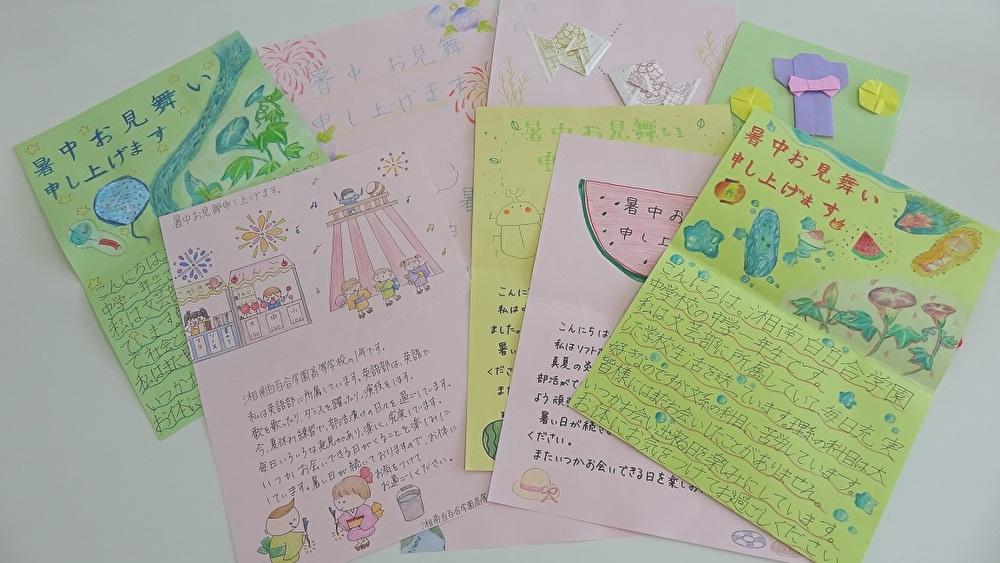 暑中お見舞い
申し上げます
こんにちは。
中学一年生
私は文芸
暑中お見舞
申し上げます
暑中お見舞い
暑中お見舞申し上げます。
りんご
湘南白百合学園高等学校の1年です。
私は英語部に所属しています。英語部は、英語で
歌を歌ったり、ダンスを踊ったり、演技をします。
今、夏休み練習で、部活漬けの日々を過ごしています。
毎日いろいろな発見があり、楽しく、充実しています。
いつかお会いできる日がくることを楽しみに
しています。暑い日が続いておりますので、お体に
お気をつけて
お過ごしください。
湘南白百合学園高等
こんに
私は
ました。
暑い
くださ
暑中お
申し上
こんにちは
私はソフト
真夏の
部活がで
よう頑
暑い日が続き
ください。
またいつかお会いできる日を楽し
暑中お見舞い
申し上げます
こんにちは。湘南白百合学園
中学校の中学一年生です。
私は文芸部に所属していて、毎日充実
した学校生活を送っています。理科の科目は大
好きなのですが文系の科目に苦労しています。
皆様にはまだお会いしたことがありません。
いつかお会い出来る日を楽しみにしています。
お体にお気をつけてお過ごしください。